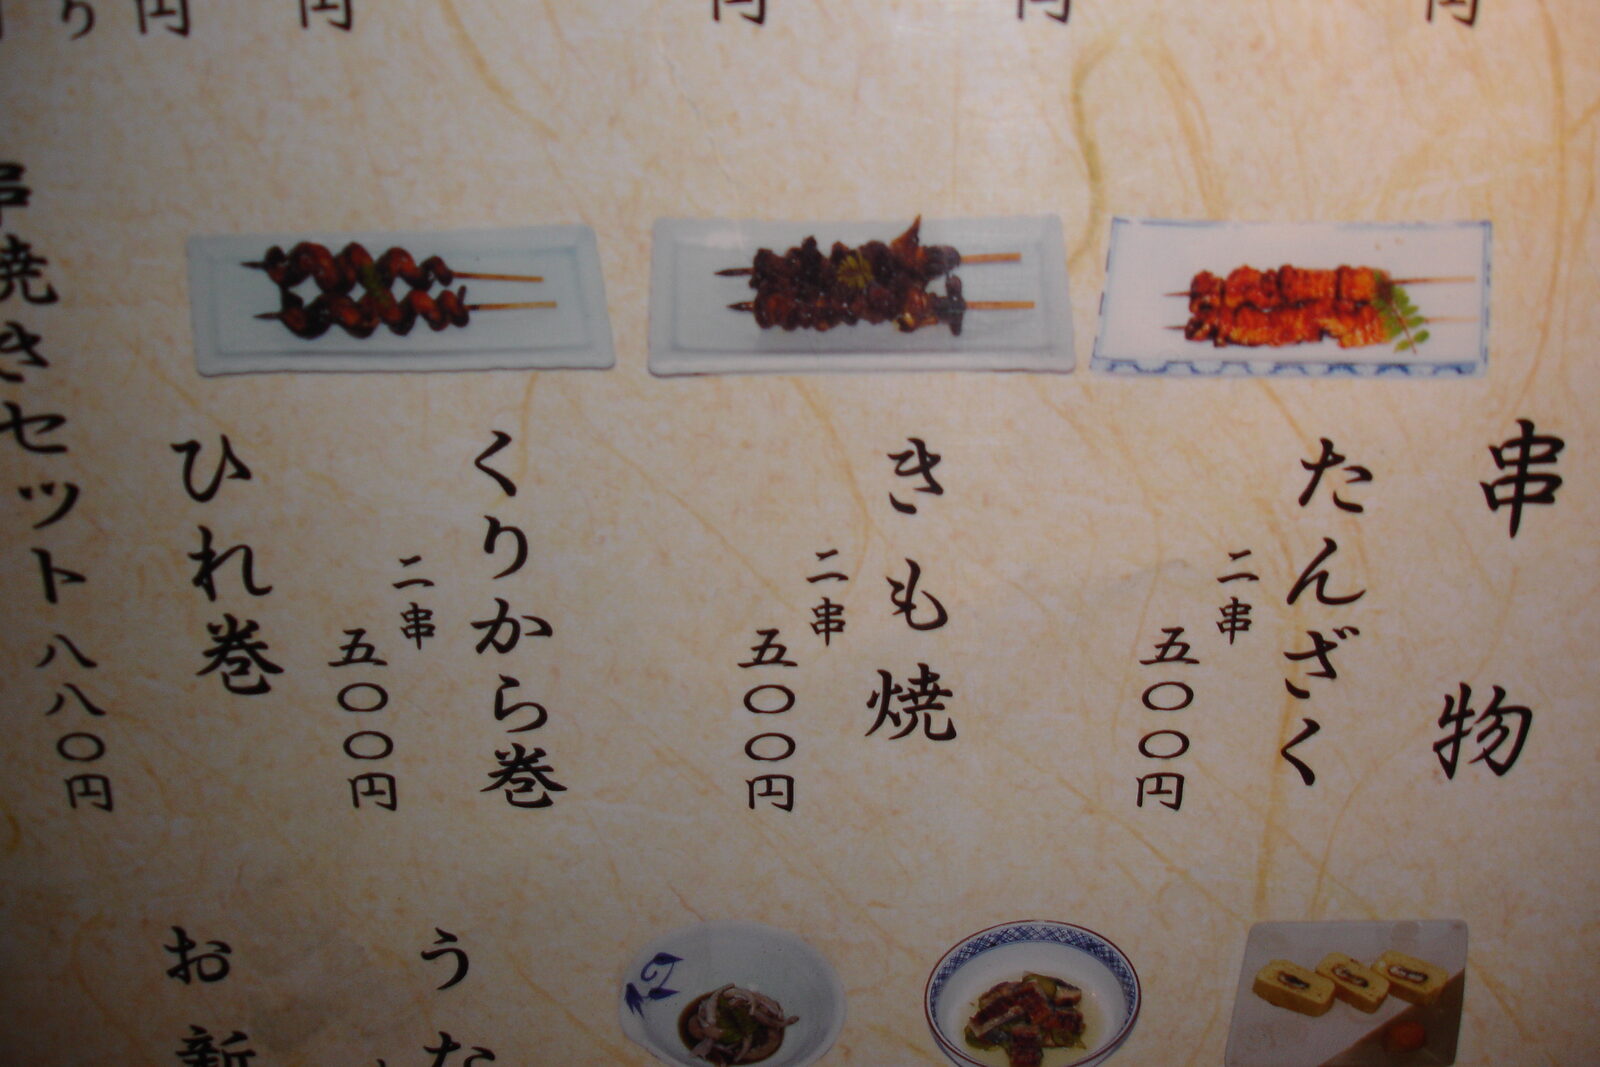 円
円
円
円
り円
串物
たんざく
二串
五〇〇円
きも焼
二串
五〇〇円
くりから巻
二串
五〇〇円
ひれ巻
串焼きセット八八〇円
うな
お新